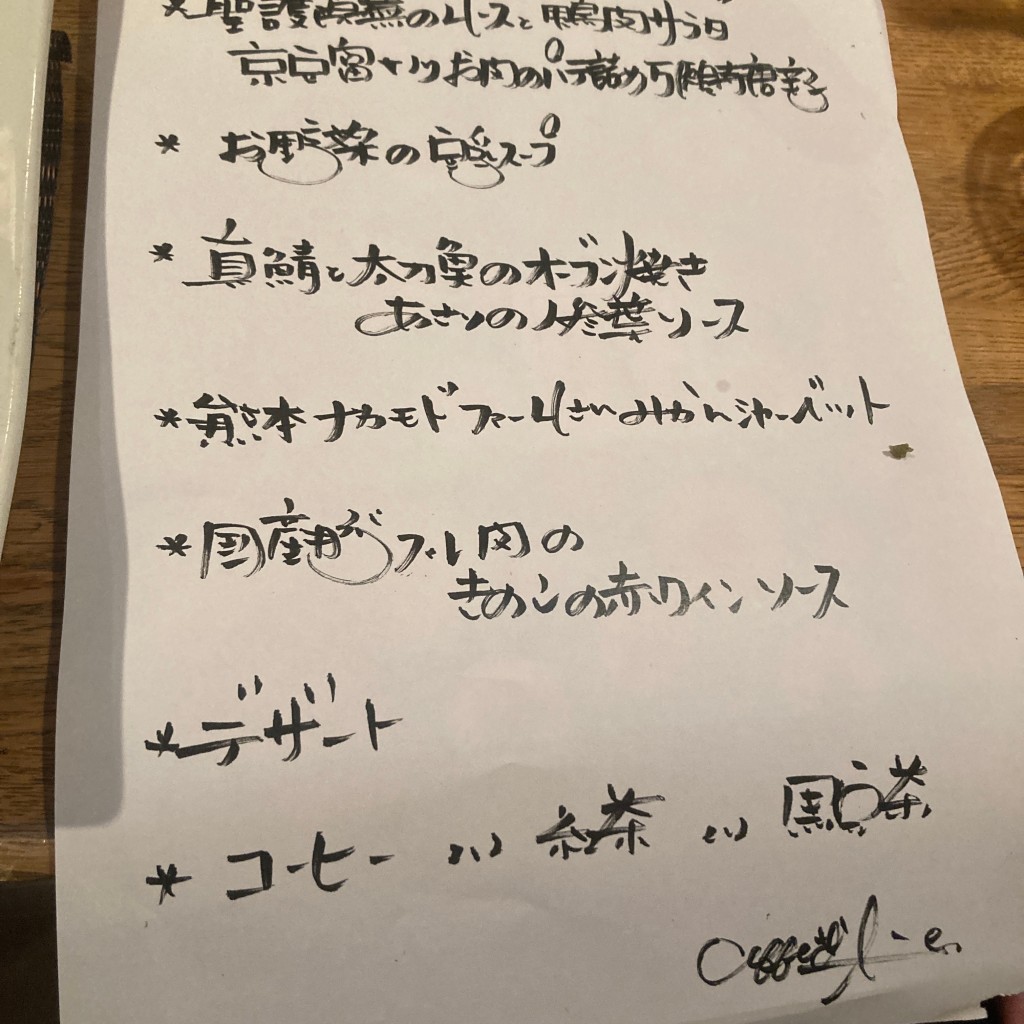 * 聖護院蕪のムースと鴨肉サラダ
お肉のパテ詰め万願寺唐辛子
* お野菜の豆乳スープ
* 真鯖と太刀魚のオーブン焼き
あさりの ソース
* 熊本ナカモトファームさんみかんシャーベット
* 国産豚フィレ肉の
きのこの赤ワインソース
* デザート
* コーヒー 、、、 紅茶 、、、 黒豆茶